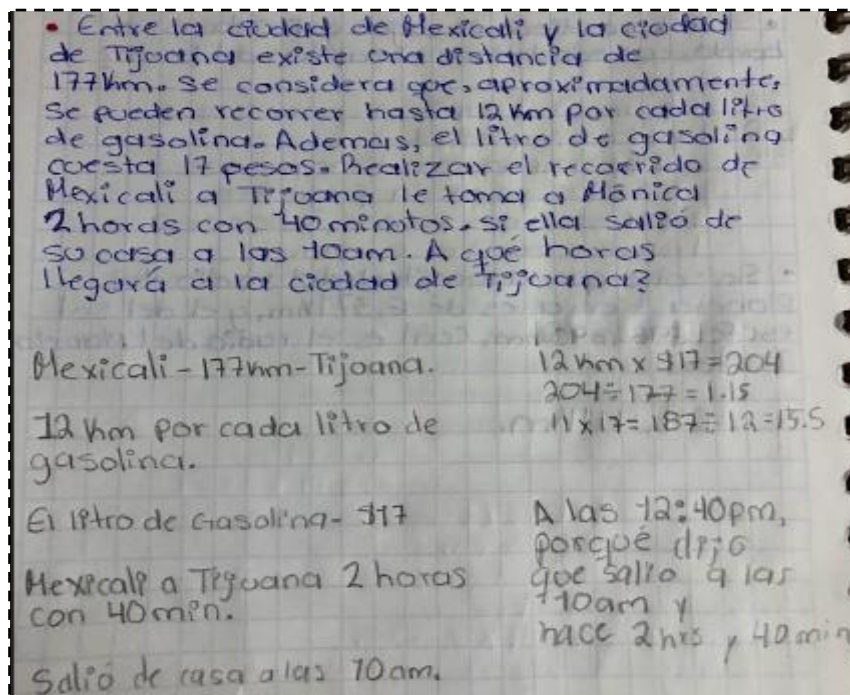 • Entre la ciudad de Mexicali y la ciudad
de Tijuana existe una distancia de
177km. se considera que, aproximadamente,
se pueden recorrer hasta 12 km por cada litro
de gasolina. Ademas, el litro de gasolina
cuesta 17 pesos. Realizar el recorrido de
Mexicali a Tijuana le toma a Mónica
2 horas con 40 minutos. si ella salió de
su casa a las 10am. A qué horas
llegará a la ciudad de Tijuana?
Mexicali - 177km - Tijuana.
12 km por cada litro de
gasolina.
El litro de Gasolina - $17
Mexicali a Tijuana 2 horas
con 40 min.
Salió de casa a las 10am.
12 km x $17 = 204
204 ÷ 177 = 1.15
11 x 17 = 187 ÷ 12 = 15.5
A las 12:40pm,
porqué dijo
que salio a las
10am y
hace 2 hrs y 40 min